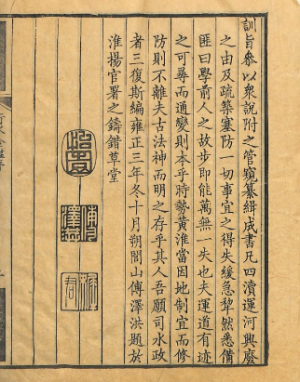 訓旨參以眾說附之管窺纂緝成書凡四瀆運河興廢
之由及疏築塞防一切事宜之得失緩急犂然悉備
匪曰學前人之故步即能萬無一失也夫運道有迹
之可尋而通變則本乎時勢黃淮當因地制宜而修
防則不離夫古法神而明之存乎其人吾願司水政
者三復斯編雍正三年冬十月朔閭山傅澤洪題於
淮揚官署之鑄錯草堂
傅澤洪